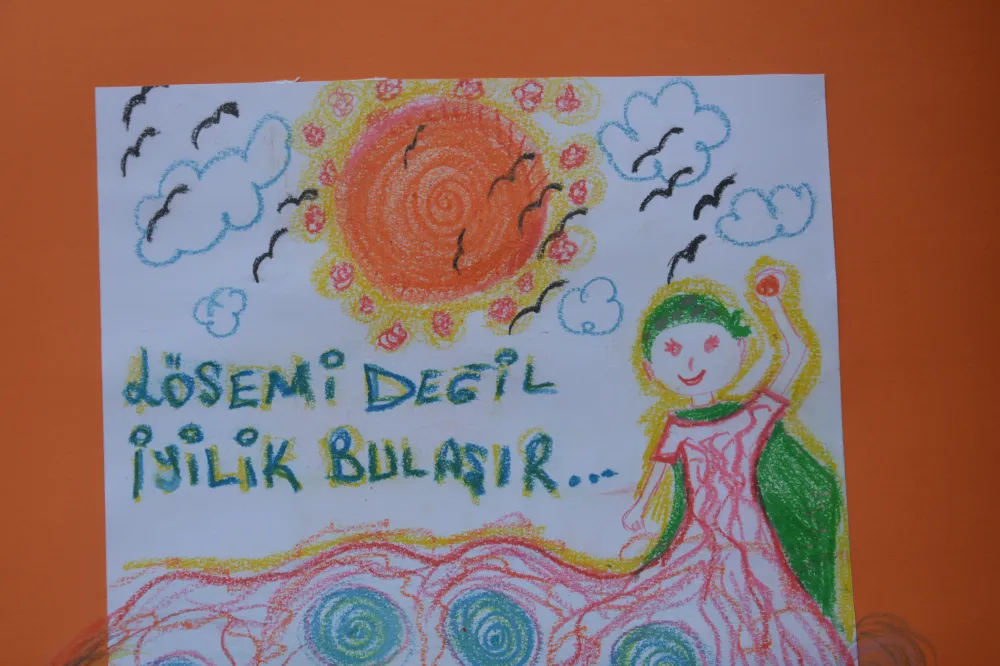 LÖSEMİ DEĞİL
İYİLİK BULAŞIR...